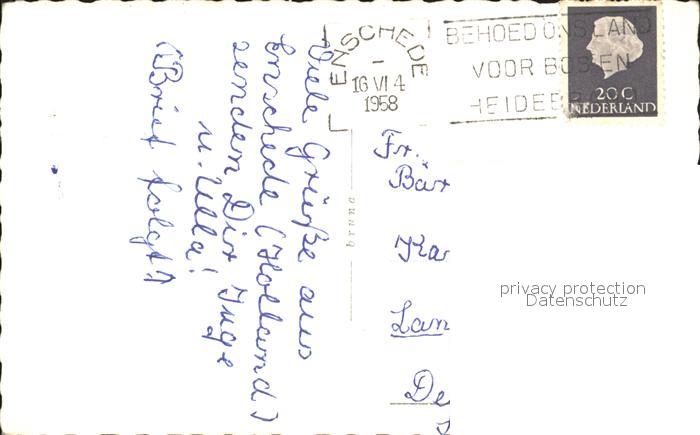 ENSCHEDE
16 VI 4
1958
BEHOED ONS LAND
VOOR BOS EN
HEIDEB
20 C
NEDERLAND
Viele Grüße aus
Enschede (Holland)
senden Dir Inge
u. Ulla!
(Brief folgt)
Fr.
Bär
Ka
Lan
De
privacy protection
Datenschutz